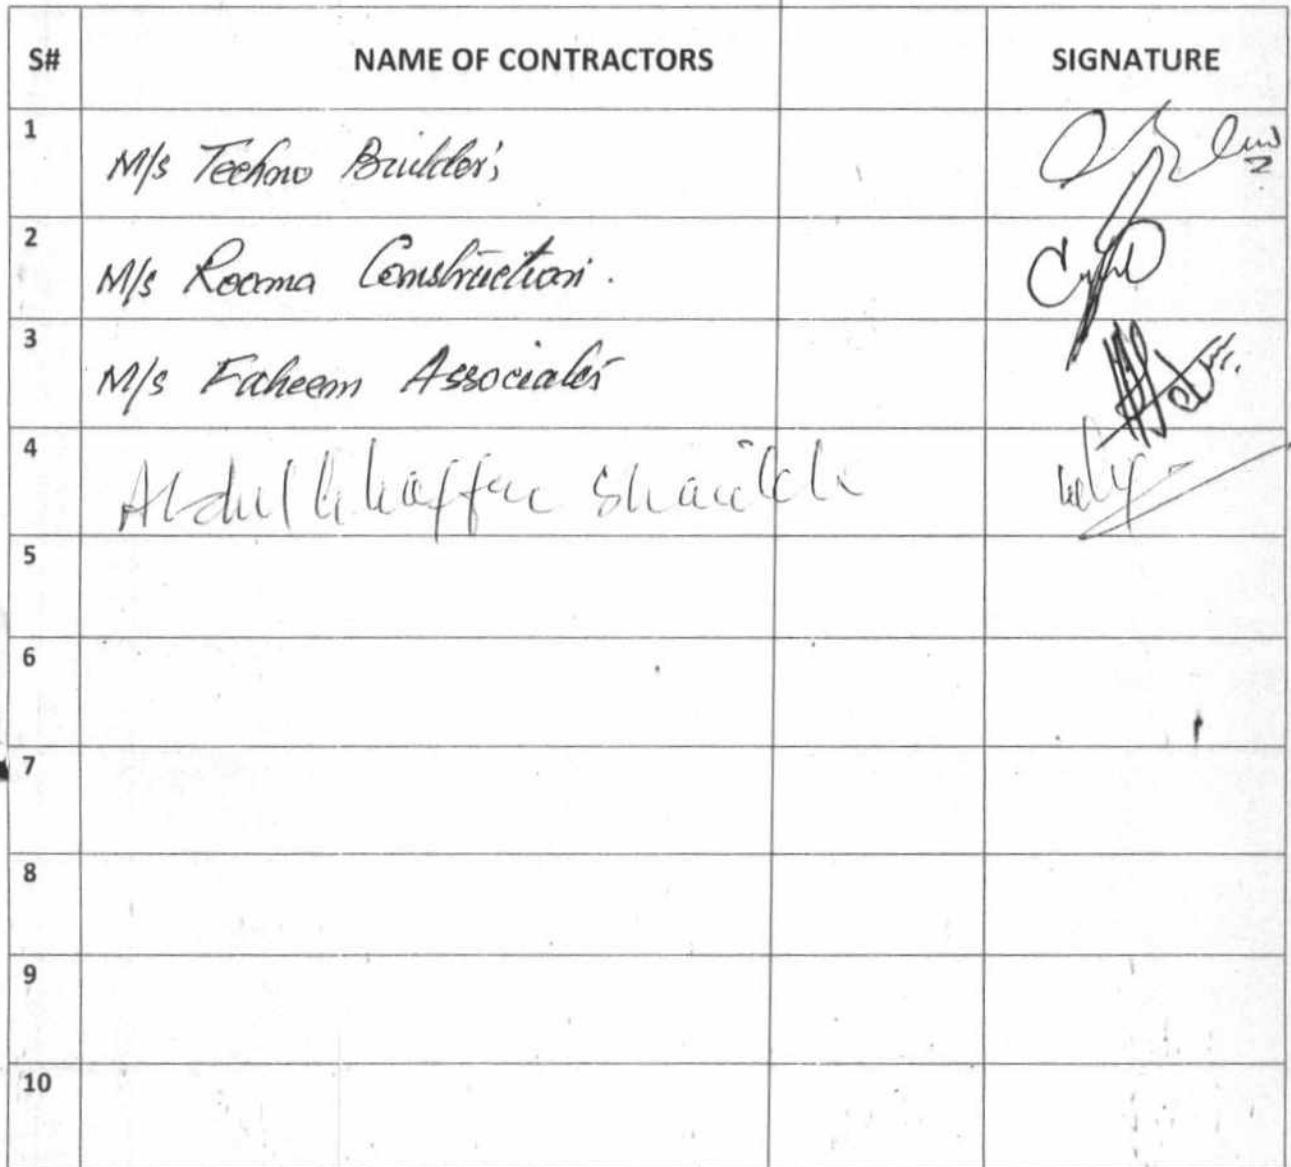 S# NAME OF CONTRACTORS SIGNATURE
1 M/s Techno Builder's
2 M/s Rooma Construction.
3 M/s Faheem Associates
4 Abdul Ghaffar Shaikh
5
6
7
8
9
10